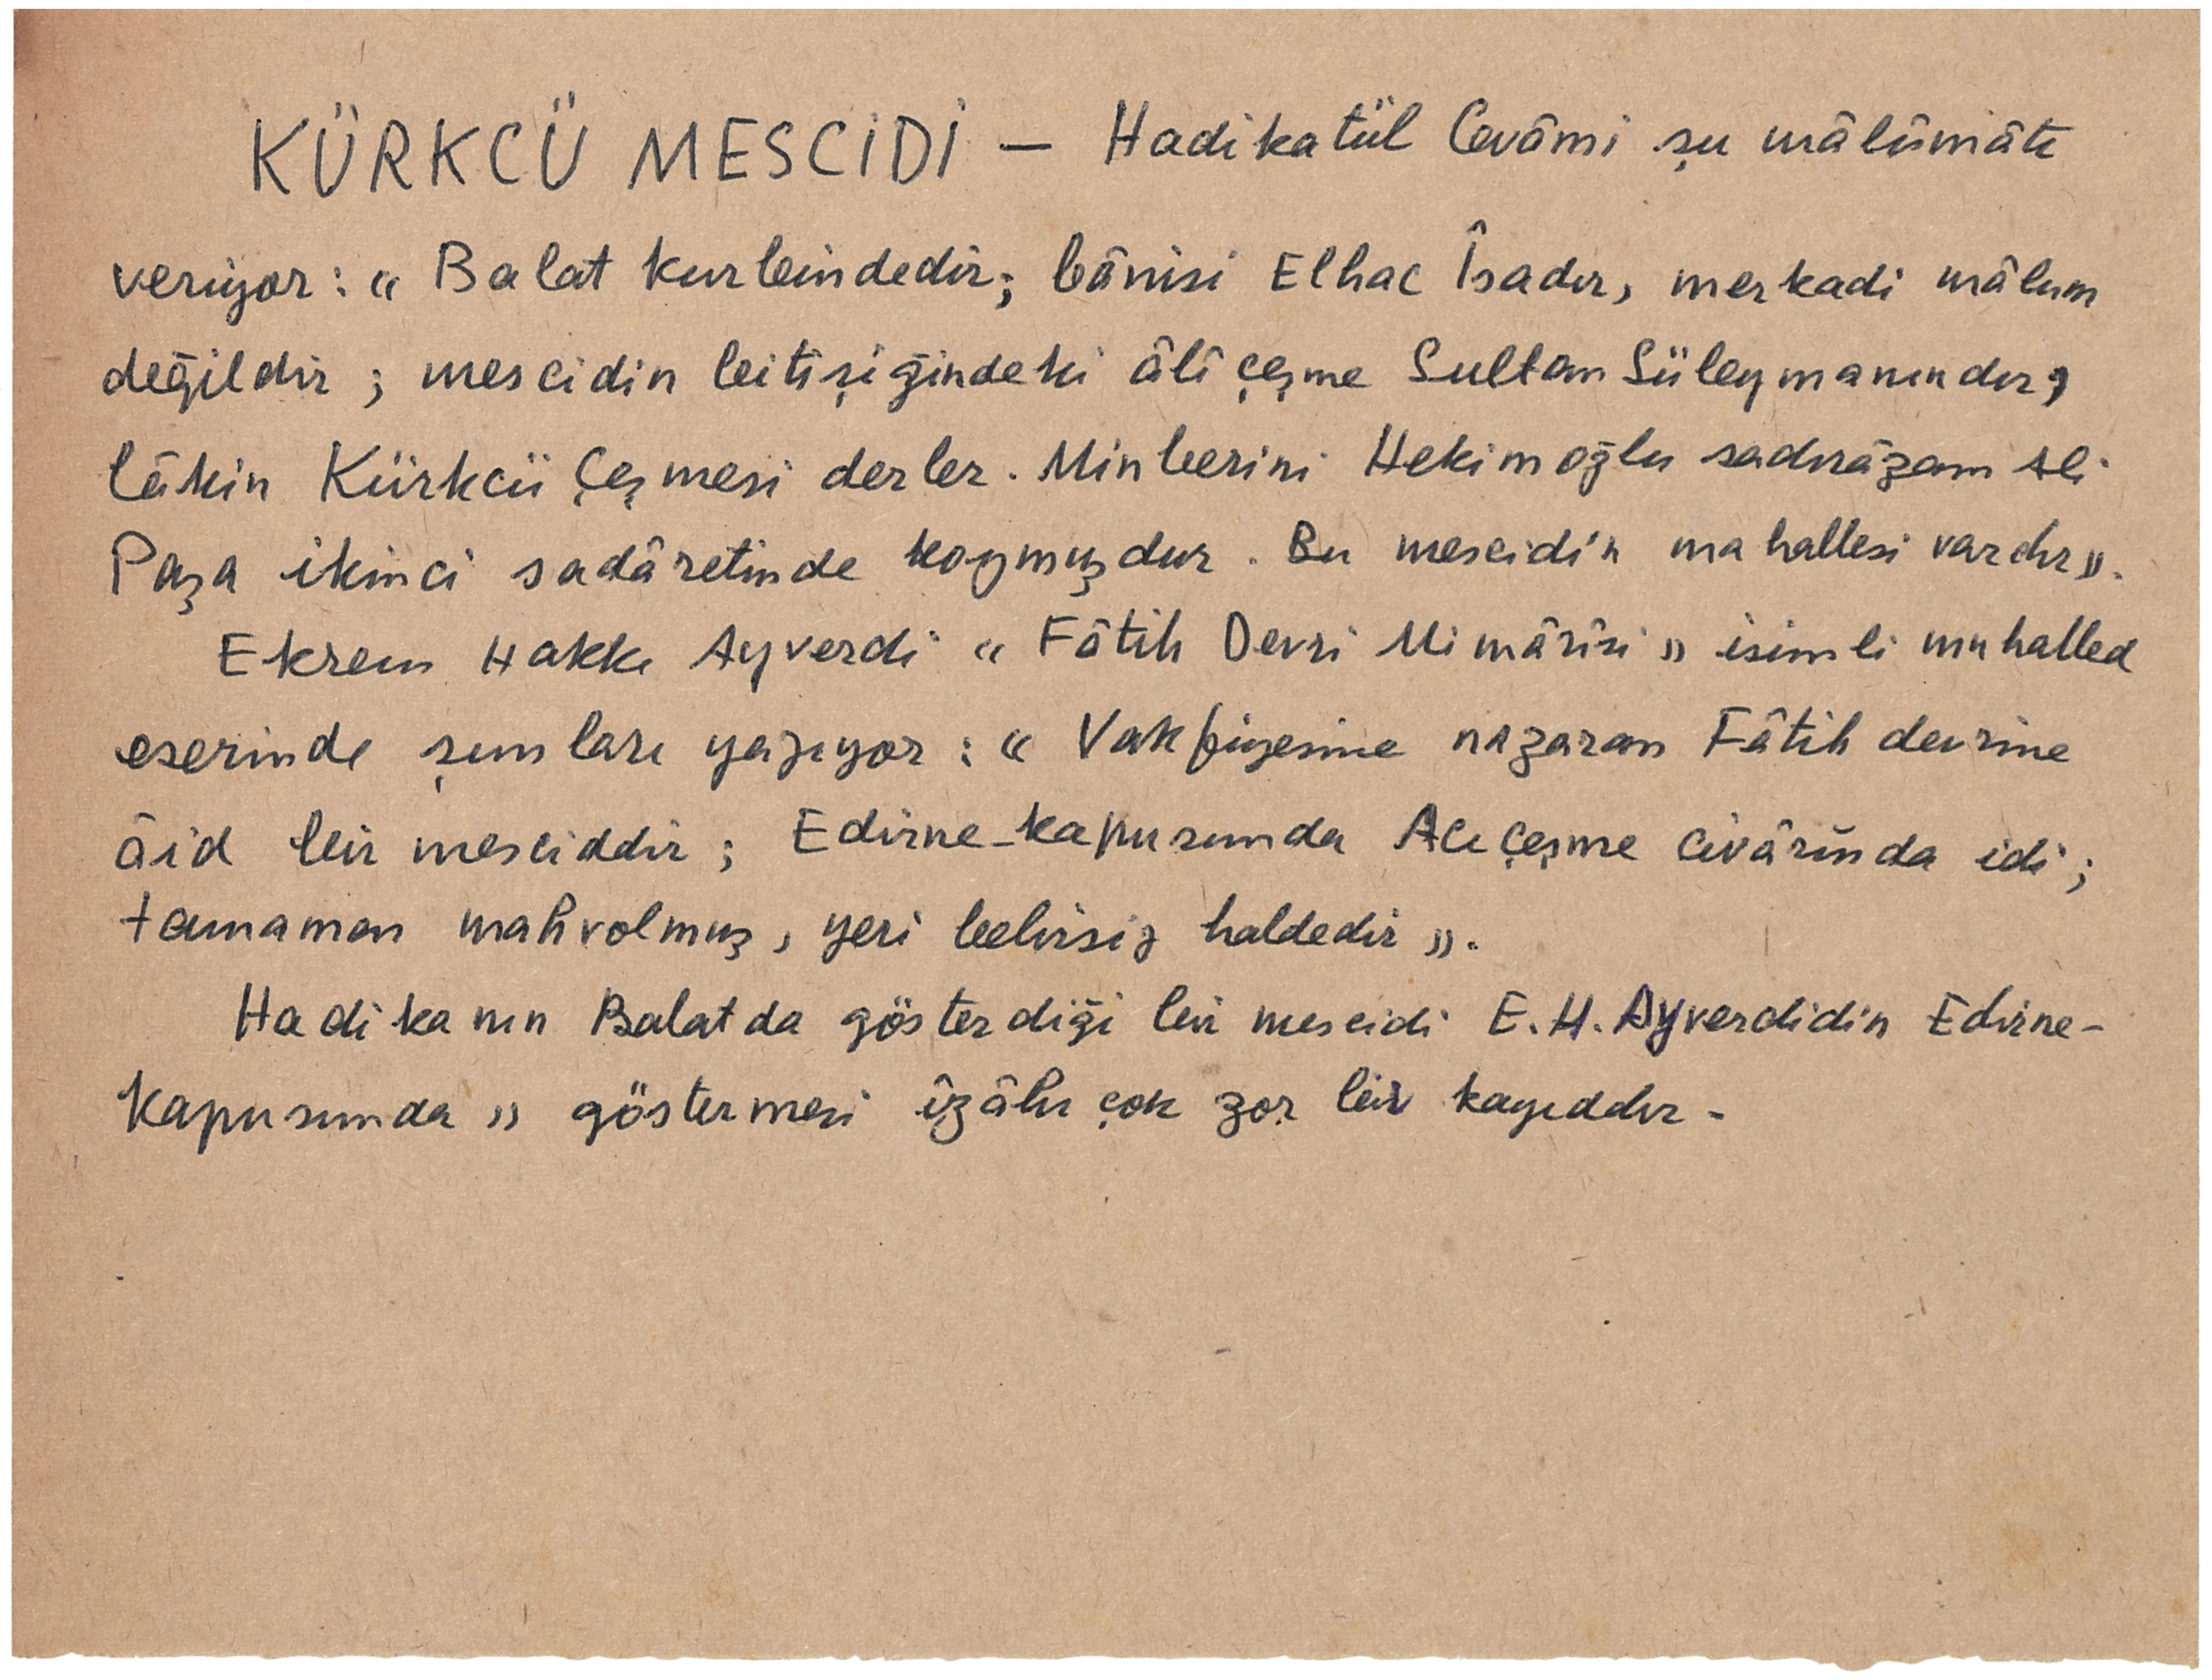 KÜRKCÜ MESCİDİ — Hadikatül Cevâmi şu mâlûmâtı
veriyor: « Balat kurbindedir; bânisi Elhac Îsadır, merkadi mâlum
değildir; mescidin bitişiğindeki âli çeşme Sultan Süleymanındır,
lâkin Kürkcü Çeşmesi derler. Minberini Hekimoğlu sadırâzam Ali
Paşa ikinci sadâretinde koymuşdur. Bu mescidin mahallesi vardır».
Ekrem Hakkı Ayverdi « Fâtih Devri Mimârisi » isimli muhalled
eserinde şunları yazıyor: « Vakfiyesine nazaran Fâtih devrine
âid bir mesciddir; Edirne-kapusunda Acıçeşme civârında idi;
tamamen mahvolmuş, yeri belirsiz haldedir ».
Hadikanın Balatda gösterdiği bir mescidi E.H. Ayverdidin Edirne-
kapusunda » göstermesi îzâhı çok zor bir kayıddır.